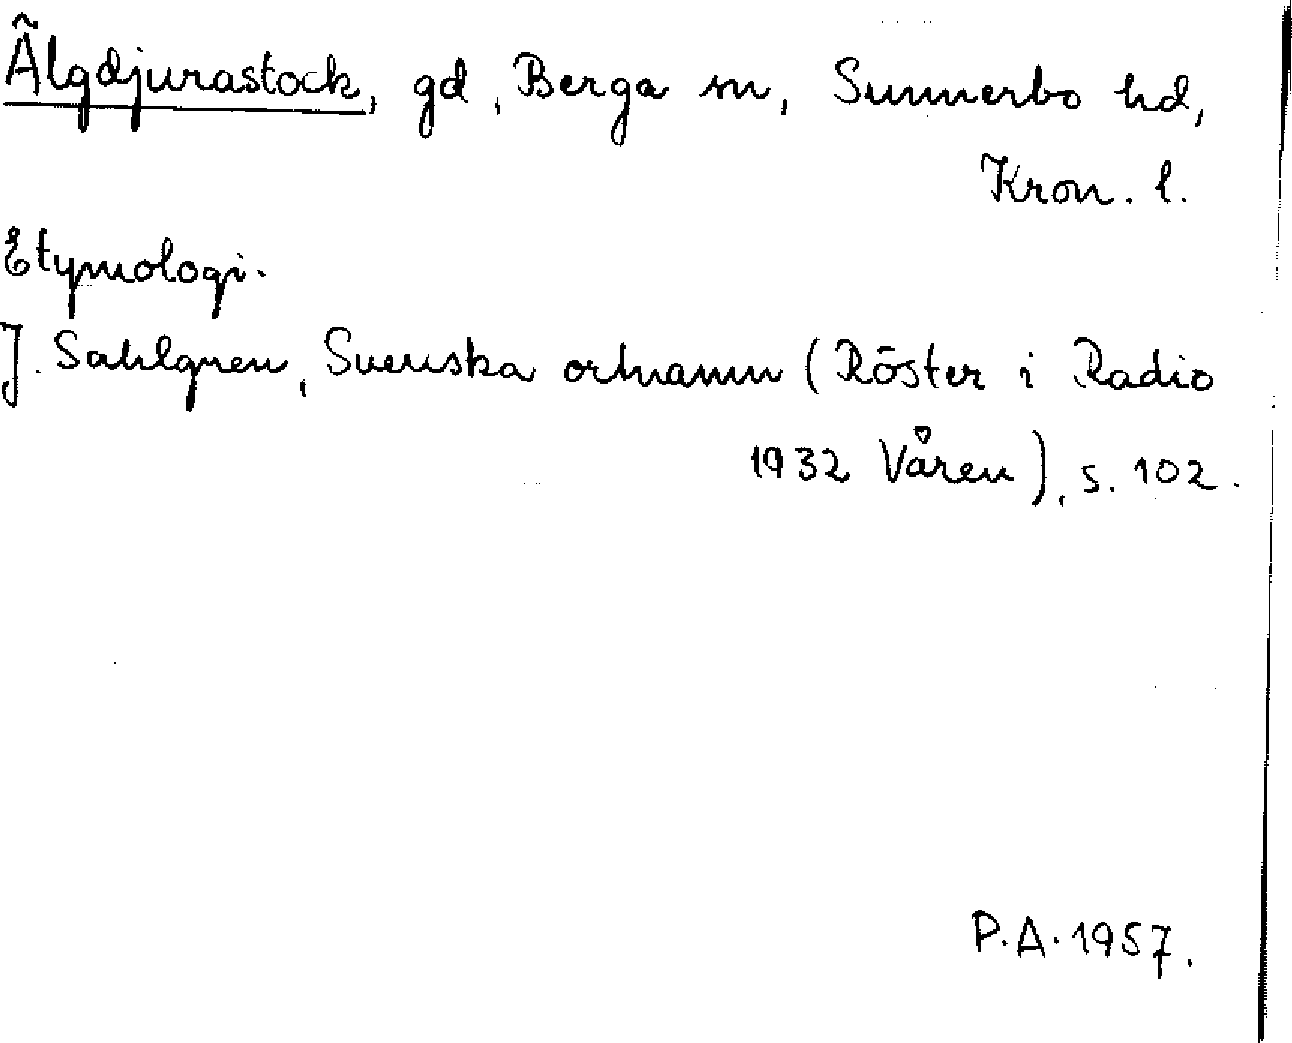 Älgdjurastock, gd, Berga sn, Sunnerbo hd,
Kron. l.
Etymologi.
J. Sahlgren, Svenska ortnamn (Röster i Radio
1932 Våren), s. 102.
P.A. 1957.